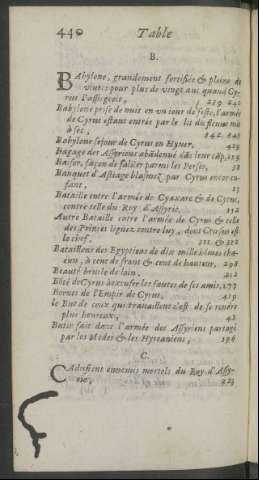 440 Table
B.
BAbylone, grandement fortifiée & pleine de
viures pour plus de vingt ans quand Cy-
rus l'assiegeoit, 239. 241
Babylone prise de nuit en un iour de feste, l'armée
de Cyrus estant entrée par le lit du fleuue mis
à sec,
Babylone seiour de Cyrus en Hyuer, 429
Bagage des Assyriens abãdonné dãs leur cãp, 129
Baiser, façon de saluër parmi les Perses,
Banquet d'Astiage blasmez par Cyrus encor en-
fant,
Bataille entre l'armée de Cyaxare & de Cyrus,
contre celle du Roy d'Assyrie,
Autre Bataille entre l'armée de Cyrus & celle
des Princes liguez contre luy, dont Cresus est
le chef,
Bataillons des Egyptiens de dix mille hõmes cha-
cun, à cent de front & cent de hauteur, 298
Beauté brusle de loin,
Bõté de Cyrus à excuser les fautes de ses amis, 177
Bornes de l'Empire de Cyrus, 419
le But de ceux qui trauaillent c'est de se rendre
plus heureux, 43
Butin fait dans l'armée des Assyriens partagé
par les Medes & les Hyrcaniens, 196
C.
CAdusiens ennemis mortels du Roy d'Assy-
rie,